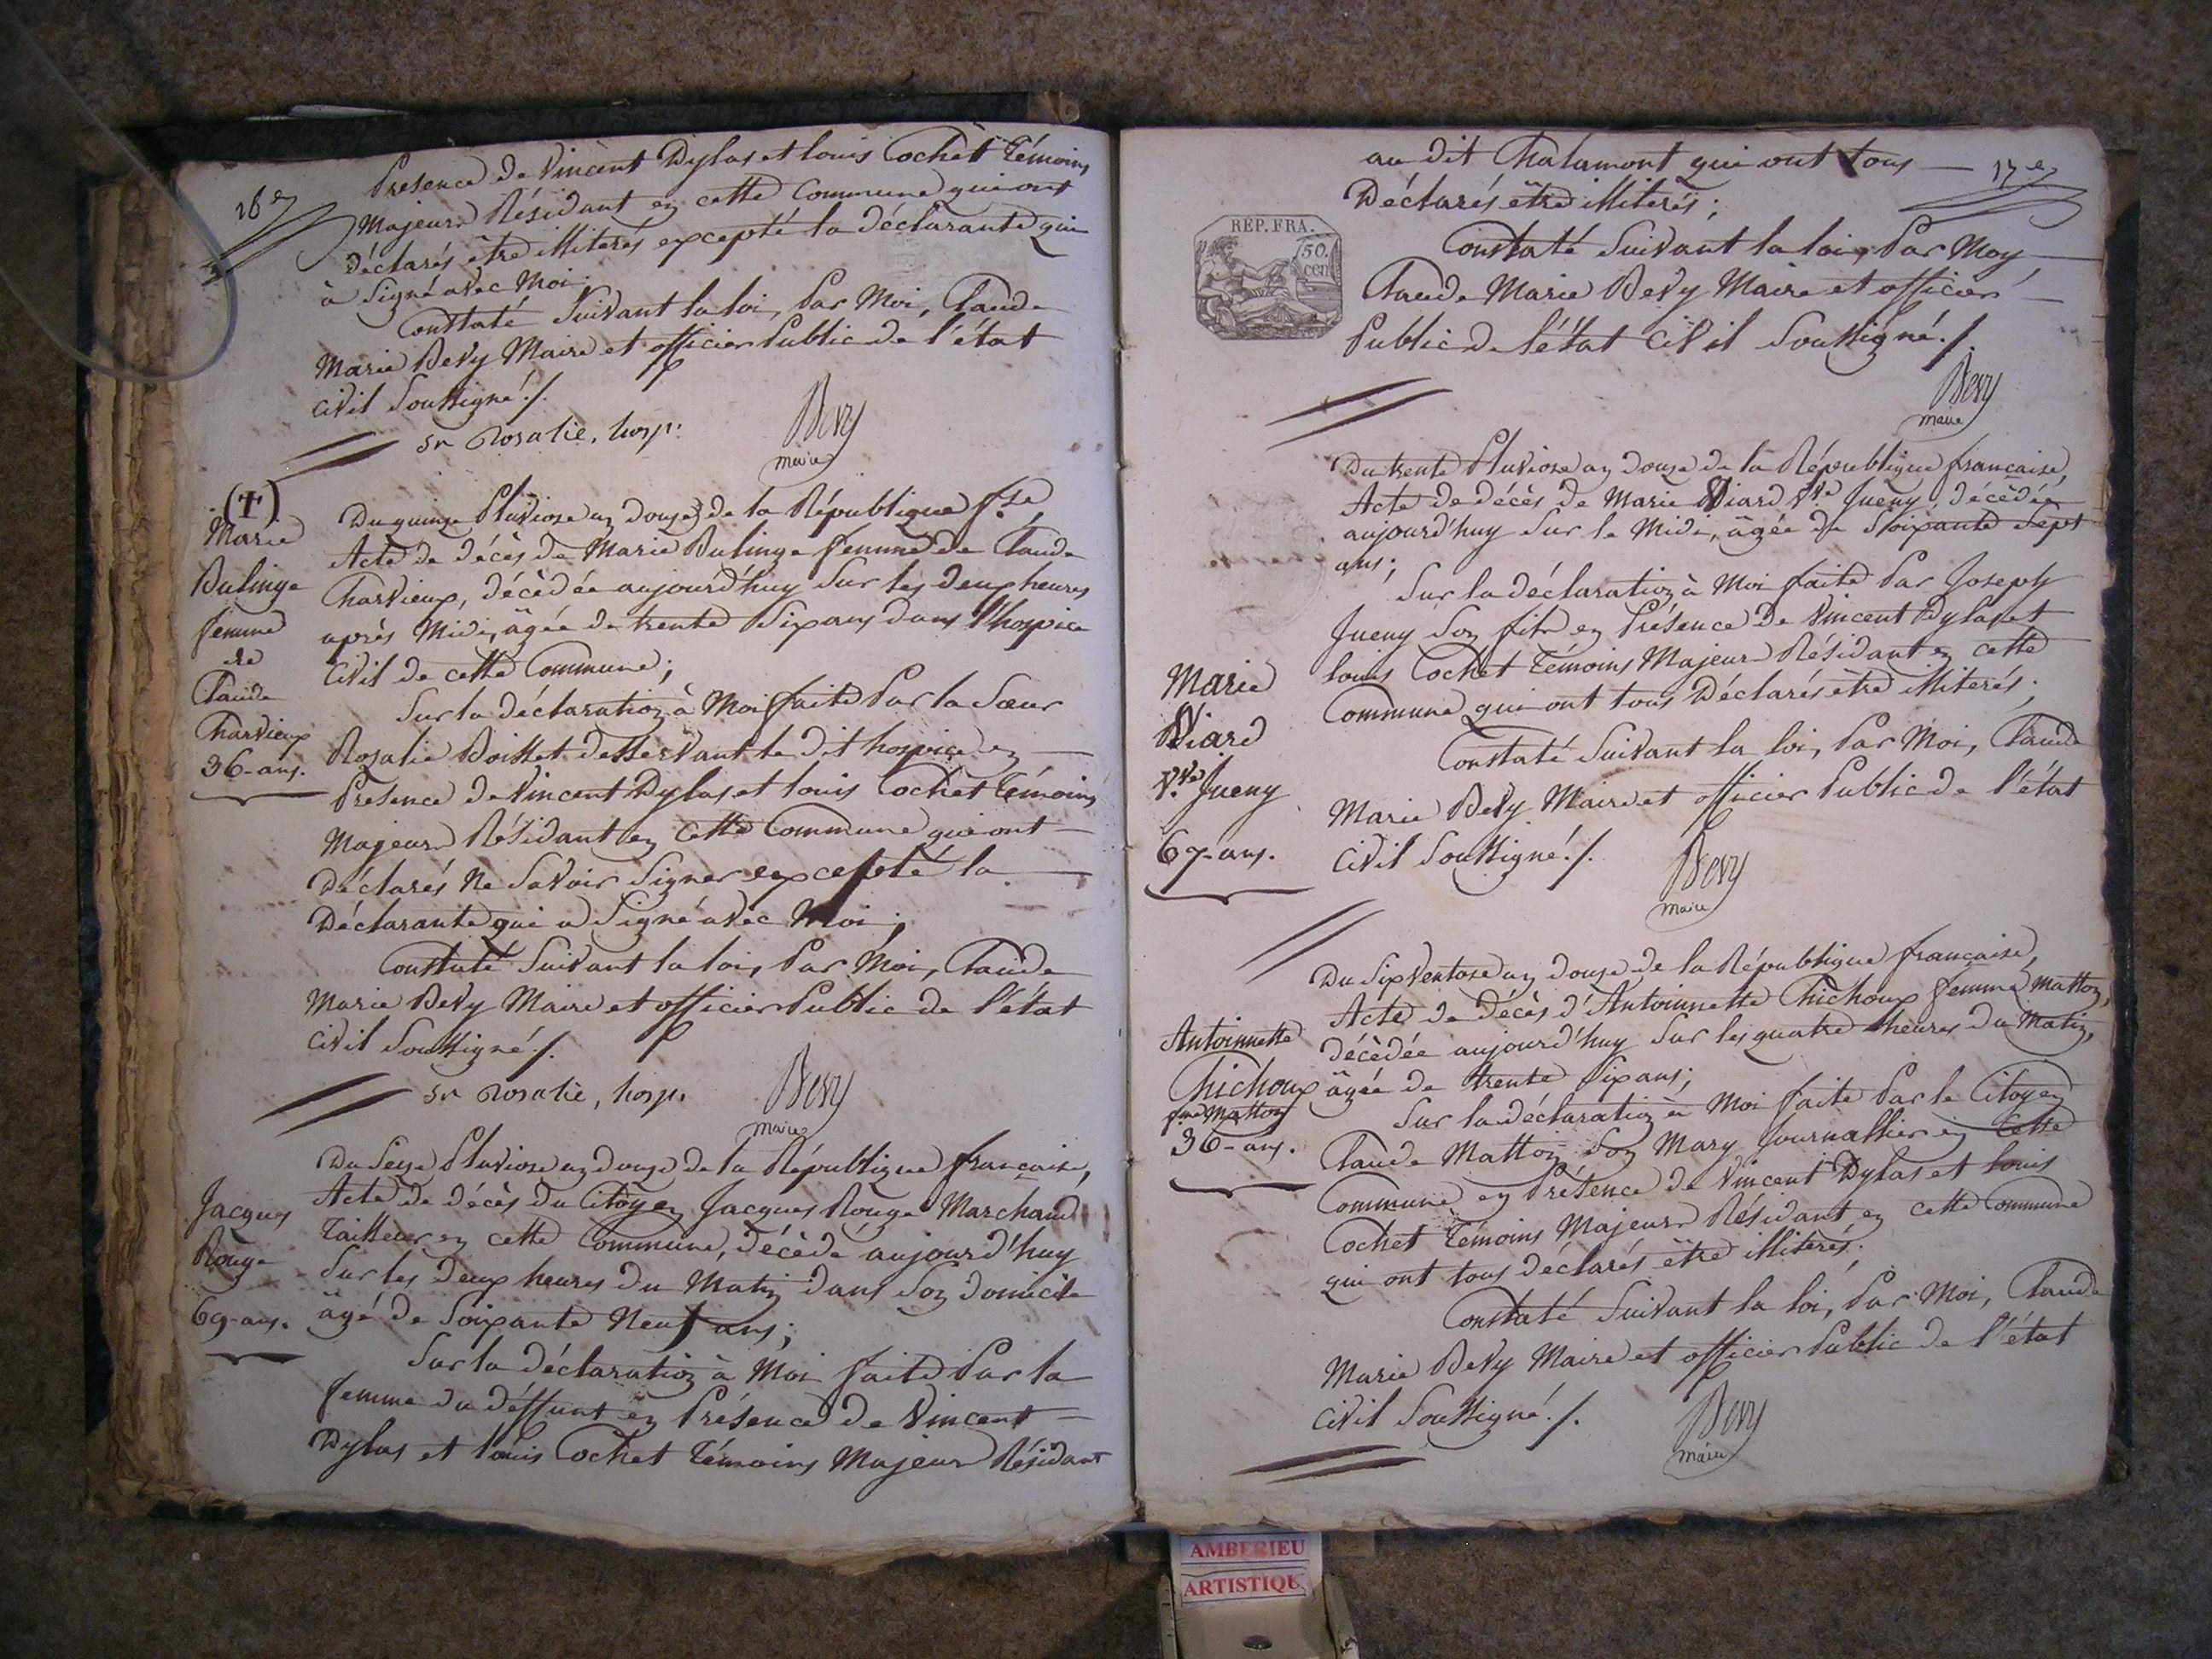 18e
Presence de Vincent Dylas et louis Cochet Témoins
Majeurs Résidant en cette Commune qui ont
déclarés être illiterés excepté la déclarante qui
à Signé avec Moi;
Constaté Suivant la loi, Par Moi, Claude
Marie Bevy Maire et officier Public de l'état
Civil Soussigné ./.
sr Rosalie, hosp.
Bevy
maire
(†)
Marie
Bulinge
femme
de
Claude
Charvieux
36-ans.
Du quinze Pluviose an douze de la République fse,
Acte de décès de Marie Bulinge femme de Claude
Charvieux, décèdée aujourd'huy Sur les deux heures
après Midi, âgée de trente Six ans dans l'hospice
Civil de cette Commune;
Sur la déclaration à Moi faite Par la Sœur
Rosalie Boisset desservant le dit hospice en
Presence de Vincent Dylas et louis Cochet Témoins
Majeurs Résidant en cette Commune qui ont
déclarés Ne Savoir Signer excepté la
Déclarante qui a Signé avec Moi;
Constaté Suivant la loi, Par Moi, Claude
Marie Bevy Maire et officier Public de l'état
Civil Soussigné ./.
sr Rosalie, hosp.
Bevy
maire
Jacques
Rouge
69-ans.
Du Seize Pluviose an douze de la République française,
Acte de décès du Citoyen Jacques Rouge Marchand
Tailleur en cette Commune, décèdé aujourd'huy
Sur les deux heures du Matin dans Son domicile
âgé de Soixante Neuf ans;
Sur la déclaration à Moi faite Par la
femme du déffunt en Présence de Vincent
Dylas et louis Cochet Témoins Majeurs Résidant
17e
au dit Chalamont qui ont tous
Déclarés être illiterés;
REP. FRA.
50.
cen
Constaté Suivant la loi, Par Moy
Claude Marie Bevy Maire et officier
Public de l'état Civil Soussigné ./.
Bevy
maire
Marie
Viard
Vve Jueny
67-ans.
Du trente Pluviose an douze de la République française,
Acte de décès de Marie Viard Vve Jueny, décèdée
aujourd'huy Sur le Midi, âgée de Soixante Sept
ans;
Sur la déclaration à Moi faite Par Joseph
Jueny Son fils en Présence de Vincent Dylas et
louis Cochet Témoins Majeurs Résidant en cette
Commune qui ont tous Déclarés être illiterés;
Constaté Suivant la loi, Par Moi, Claude
Marie Bevy Maire et officier Public de l'état
Civil Soussigné ./.
Bevy
maire
Antoinnette
Chichoux
fme Matton
36-ans.
Du Six Ventose an douze de la République française,
Acte de décès d'Antoinnette Chichoux femme Matton,
décèdée aujourd'huy Sur les quatre heures du Matin,
âgée de trente Six ans;
Sur la déclaration à Moi faite Par le Citoyen
Claude Matton Son Mary Journallier en cette
Commune en Présence de Vincent Dylas et louis
Cochet Témoins Majeurs Résidant en cette Commune
qui ont tous déclarés être illiterés;
Constaté Suivant la loi, Par Moi, Claude
Marie Bevy Maire et officier Public de l'état
Civil Soussigné ./.
Bevy
maire
AMBERIEU
ARTISTIQU